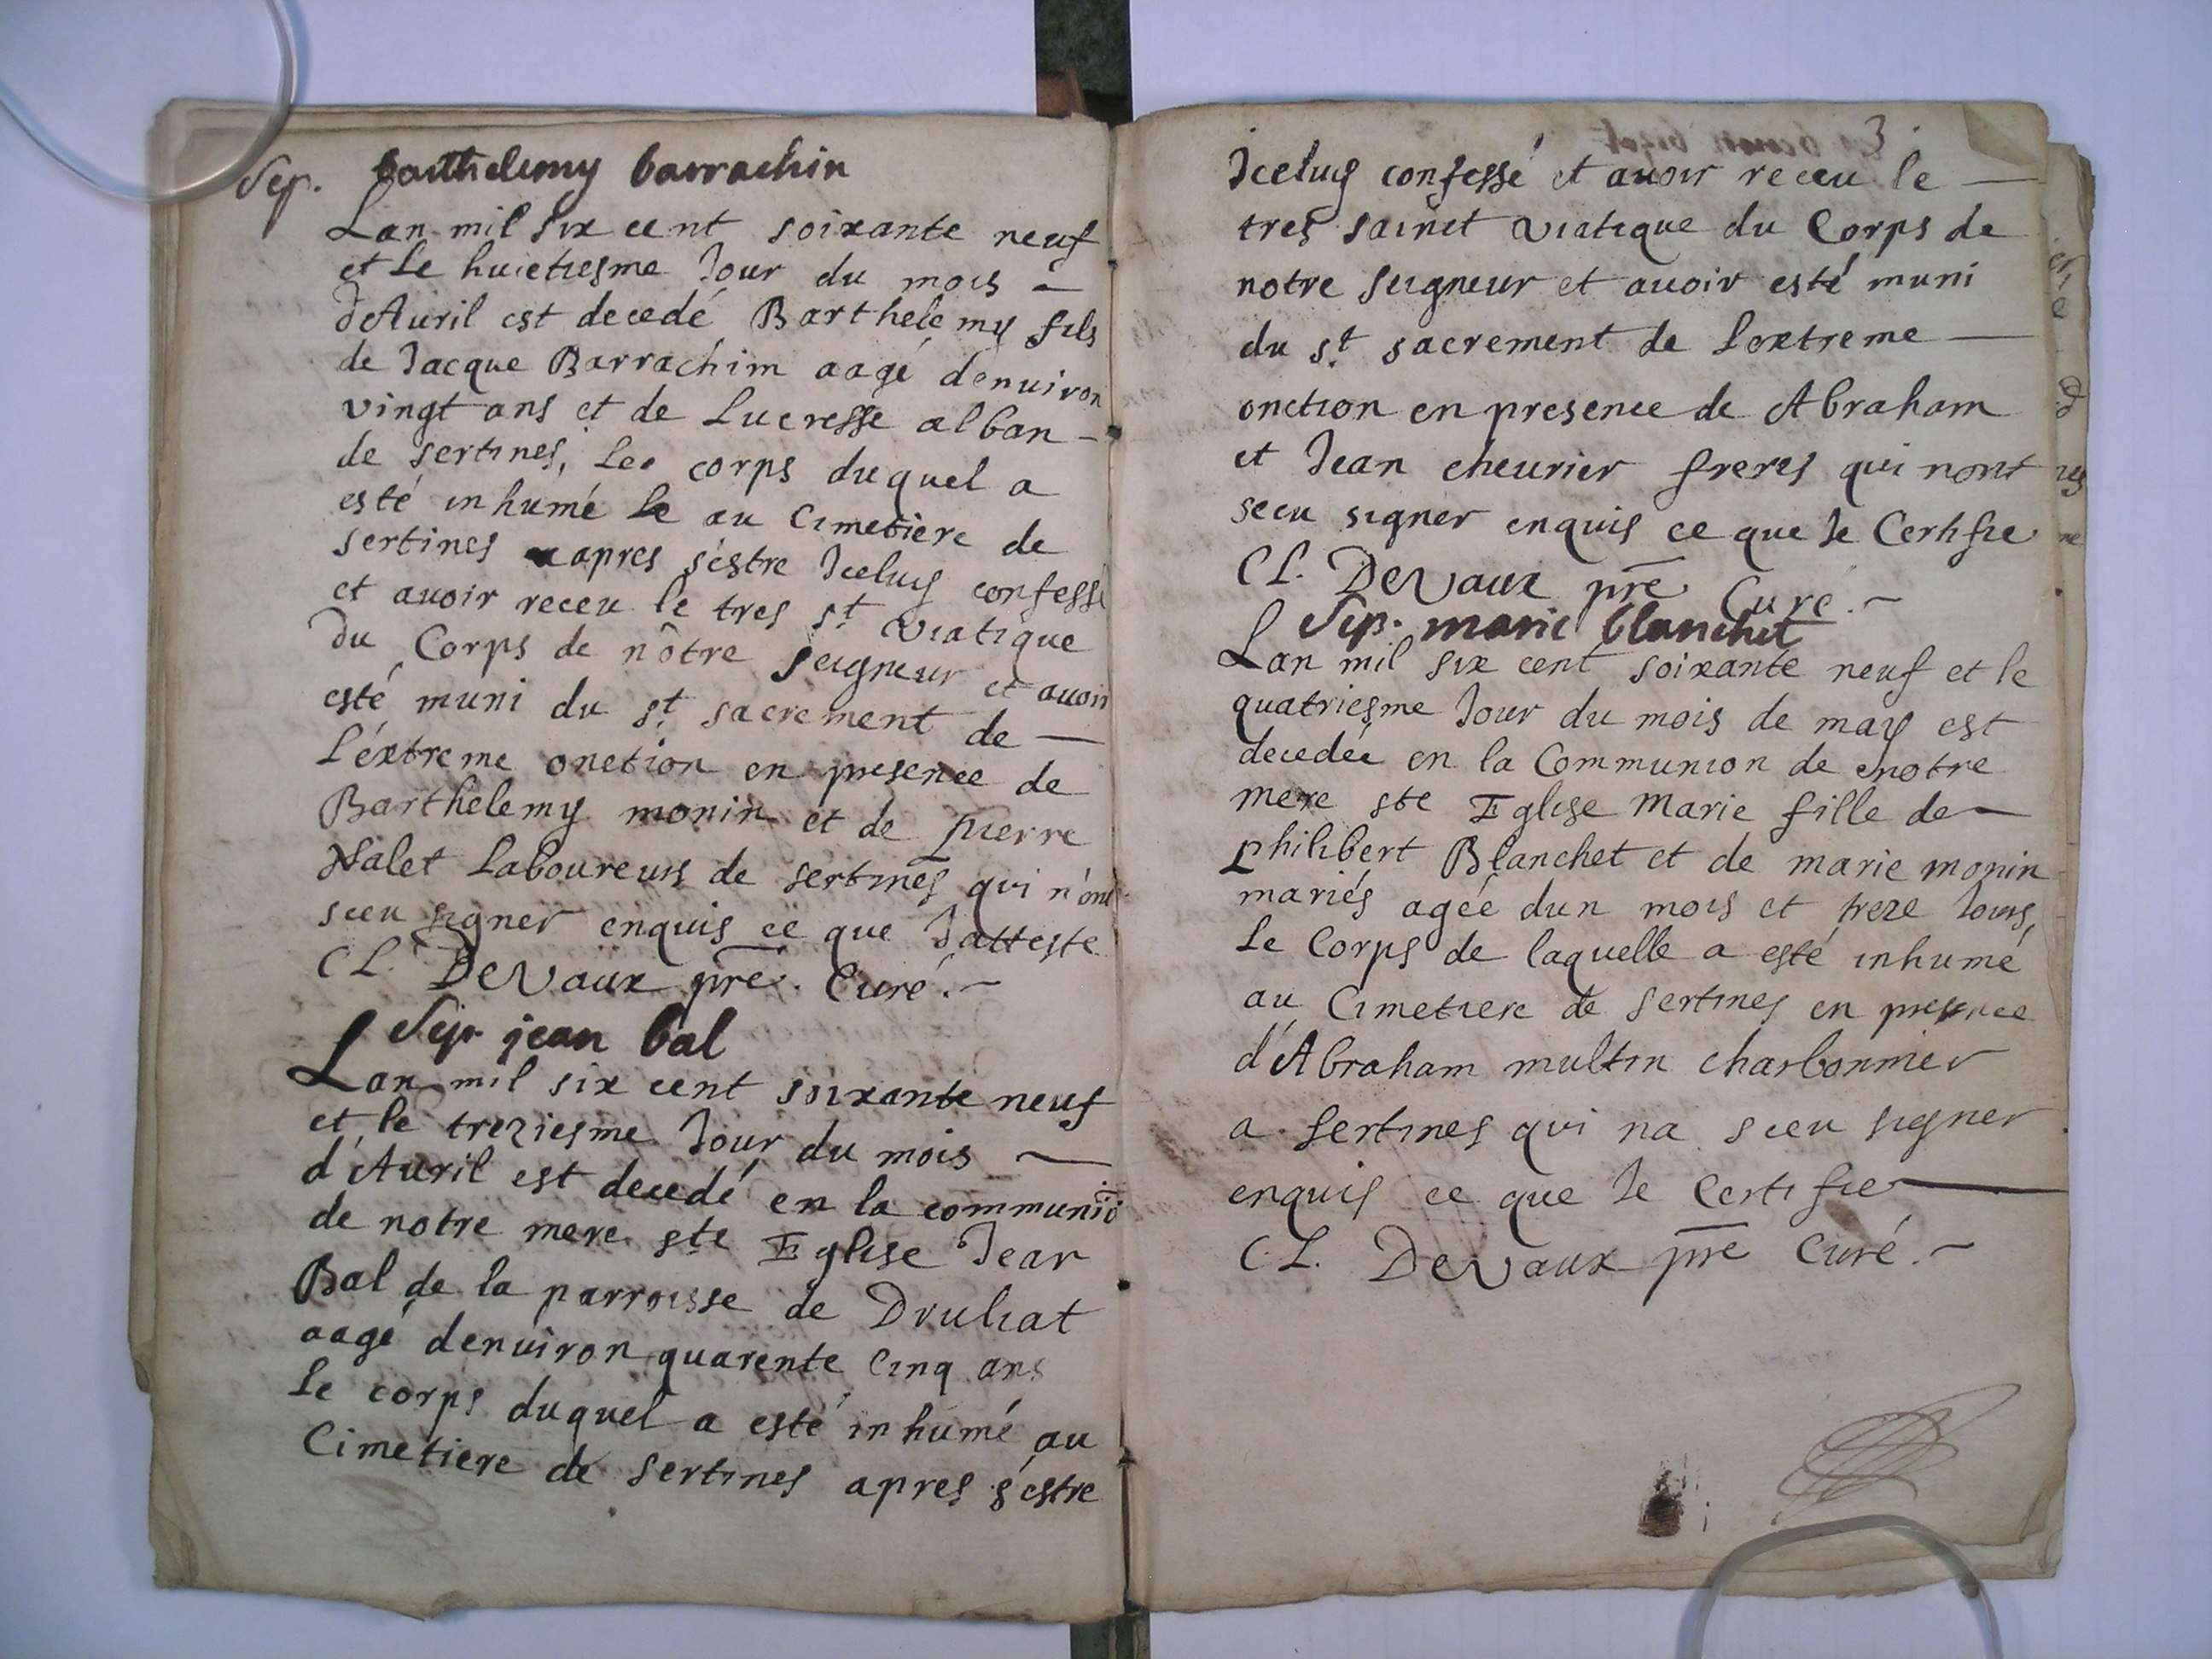 Sep. barthelemy barrachin
Lan mil six cent soixante neuf
et le huictiesme Jour du mois -
dAuril est decedé Barthelemy fils
de Jacque Barrachim aagé denuiron
vingt ans et de Lucresse alban -
de sertines, Leo corps duquel a
esté inhumé le au Cimetiere de
sertines apres séstre Jceluy confessé
et auoir receu le tres st viatique
du Corps de nôtre seigneur et auoir
esté muni du st sacrement de —
l'éxtreme onction en presence de
Barthelemy monin et de pierre
Nalet Laboureurs de sertines qui n'ont
sceu signer enquis ce que Jatteste
CL. Devaux pre. Curé. ~
Sep. jean bal
Lan mil six cent soixante neuf
et le treziesme Jour du mois —
d'Auril est decedé en la communiō
de notre mere ste Eglise Jean
Bal de la parroisse de Druliat
aagé denuiron quarente Cinq ans
le corps duquel a esté inhumé au
Cimetiere de sertines apres s'estre
3.
Jceluy confessé et auoir receu le —
tres sainct viatique du Corps de
notre seigneur et auoir esté muni
du st sacrement de Lextreme —
onction en presence de Abraham
et Jean cheurier freres qui nont
sceu signer enquis ce que Je Certifie
CL. Devaux pre Curé. ~
Sep. marie blanchet
Lan mil six cent soixante neuf et le
quatriesme Jour du mois de may est
decedée en la Communion de notre
mere ste Eglise Marie fille de —
philibert Blanchet et de marie monin
mariés agée dun mois et treze Jours,
Le Corps de laquelle a esté inhumé
au Cimetiere de sertines en presence
d'Abraham multin charbonnier
a sertines qui na sceu signer
enquis ce que Je Certifie —
CL. Devaux pre Curé. ~